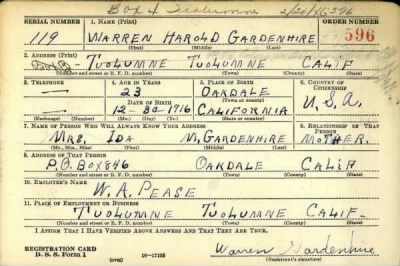 Box 4 Tuolumne
SERIAL NUMBER 1. NAME (Print) ORDER NUMBER
119 WARREN HAROLD GARDENHIRE 596
(First) (Middle) (Last)
2. ADDRESS (Print)
Box 3 TUOLUMNE TUOLUMNE CALIF
(Number and street or R. F. D. number) (Town) (County) (State)
3. TELEPHONE 4. AGE IN YEARS 5. PLACE OF BIRTH 6. COUNTRY OF CITIZENSHIP
— 23 OAKDALE
DATE OF BIRTH (Town or county)
— 12-30-1916 CALIFORNIA U.S.A.
(Exchange) (Number) (Mo.) (Day) (Yr.) (State or country)
7. NAME OF PERSON WHO WILL ALWAYS KNOW YOUR ADDRESS 8. RELATIONSHIP OF THAT PERSON
MRS. IDA M. GARDENHIRE MOTHER.
(Mr., Mrs., Miss) (First) (Middle) (Last)
9. ADDRESS OF THAT PERSON
P.O. BOX 846 OAKDALE CALIF
(Number and street or R. F. D. number) (Town) (County) (State)
10. EMPLOYER'S NAME
W. A. PEASE
11. PLACE OF EMPLOYMENT OR BUSINESS
TUOLUMNE TUOLUMNE CALIF.
(Number and street or R. F. D. number) (Town) (County) (State)
I AFFIRM THAT I HAVE VERIFIED ABOVE ANSWERS AND THAT THEY ARE TRUE.
REGISTRATION CARD
D. S. S. Form 1 16-17105 Warren Gardenhire
(Registrant's signature)